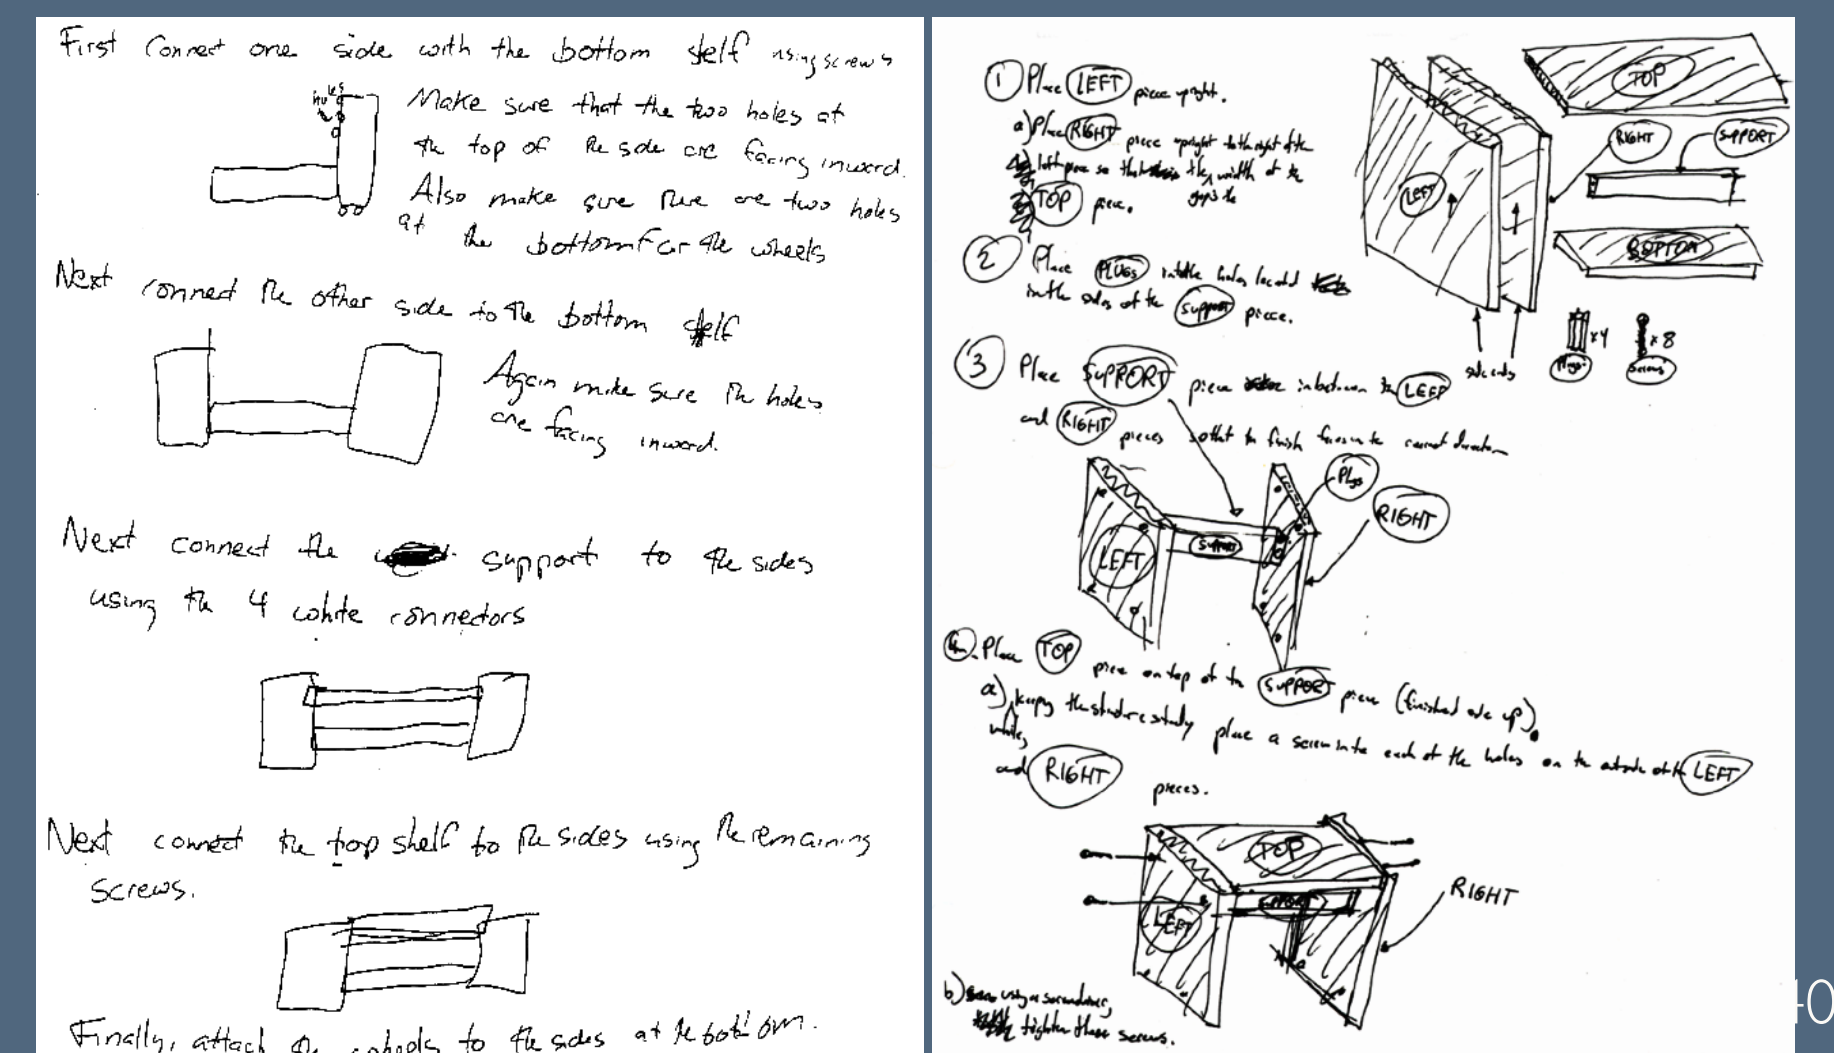 First Connect one side with the bottom shelf using screws
holes
Make sure that the two holes at
the top of the side are facing inward.
Also make sure there are two holes
at the bottom for the wheels
Next connect the other side to the bottom shelf
Again make sure the holes
are facing inward.
Next connect the support to the sides
using the 4 white connectors
Next connect the top shelf to the sides using the remaining
screws.
Finally, attach the wheels to the sides at the bottom.
1 Place LEFT piece upright.
a) Place RIGHT piece upright to the right of the
left piece so that the width of the
gap is the
TOP piece.
2 Place PLUGS into the holes located
in the sides of the support piece.
3 Place SUPPORT piece in between the LEFT
and RIGHT pieces so that the finish faces in the correct direction
TOP
RIGHT
SUPPORT
LEFT
BOTTOM
x4
x8
Plugs
Screws
Plugs
RIGHT
LEFT
SUPPORT
4. Place TOP piece on top of the SUPPORT piece (finished side up).
a) while keeping the structure sturdy place a screw into each of the holes on the outside of the LEFT
and RIGHT pieces.
TOP
SUPPORT
LEFT
RIGHT
b) using a screwdriver,
tighten these screws.
40